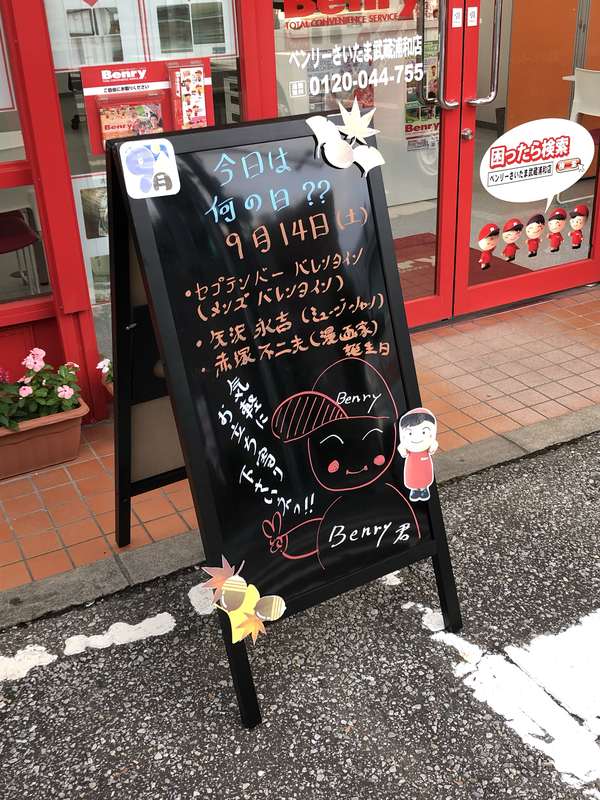 Benry
TOTAL CONVENIENCE SERVICE
ベンリーさいたま武蔵浦和店
0120-044-755
Benry
ご自由にお取りください
Benry
Benry
困ったら検索
ベンリーさいたま武蔵浦和店
9月
今日は
何の日??
9月14日(土)
・セプテンバー バレンタイン
(メンズ バレンタイン)
・矢沢 永吉(ミュージシャン)
・赤塚 不二夫(漫画家)
誕生日
気軽に
お立ち寄り
下さいネっ!!
Benry
Benry君